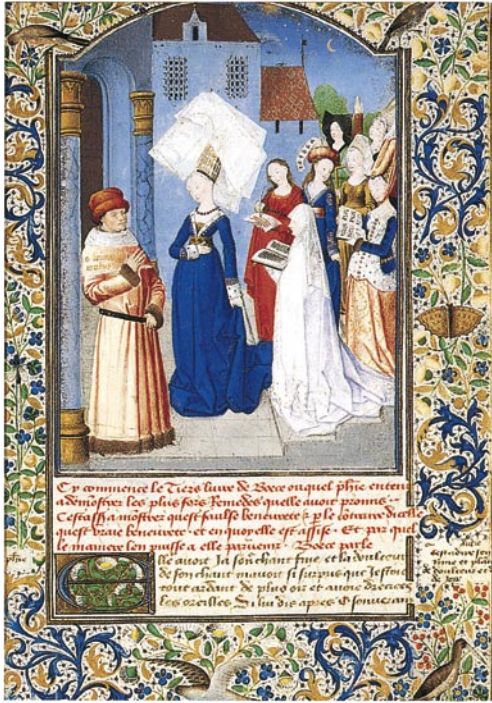 Cy commence le Tiers livre de Boece ouquel phie enten
a demostrer les plus fors Remedes quelle avoit promis
Cestassa mostrer quest faulse beneurete
quest vraie beneurete et en quoy elle est assise Et par quel
le maniere len puisse a elle parvenir Boece parle
Elle avoit Ja son chant fine et la doulceur
de son chant mavoit si surpris que Jestoie
tout ardant de plus oir et avoie drecees
les oreilles Si lui dis apres O souverain